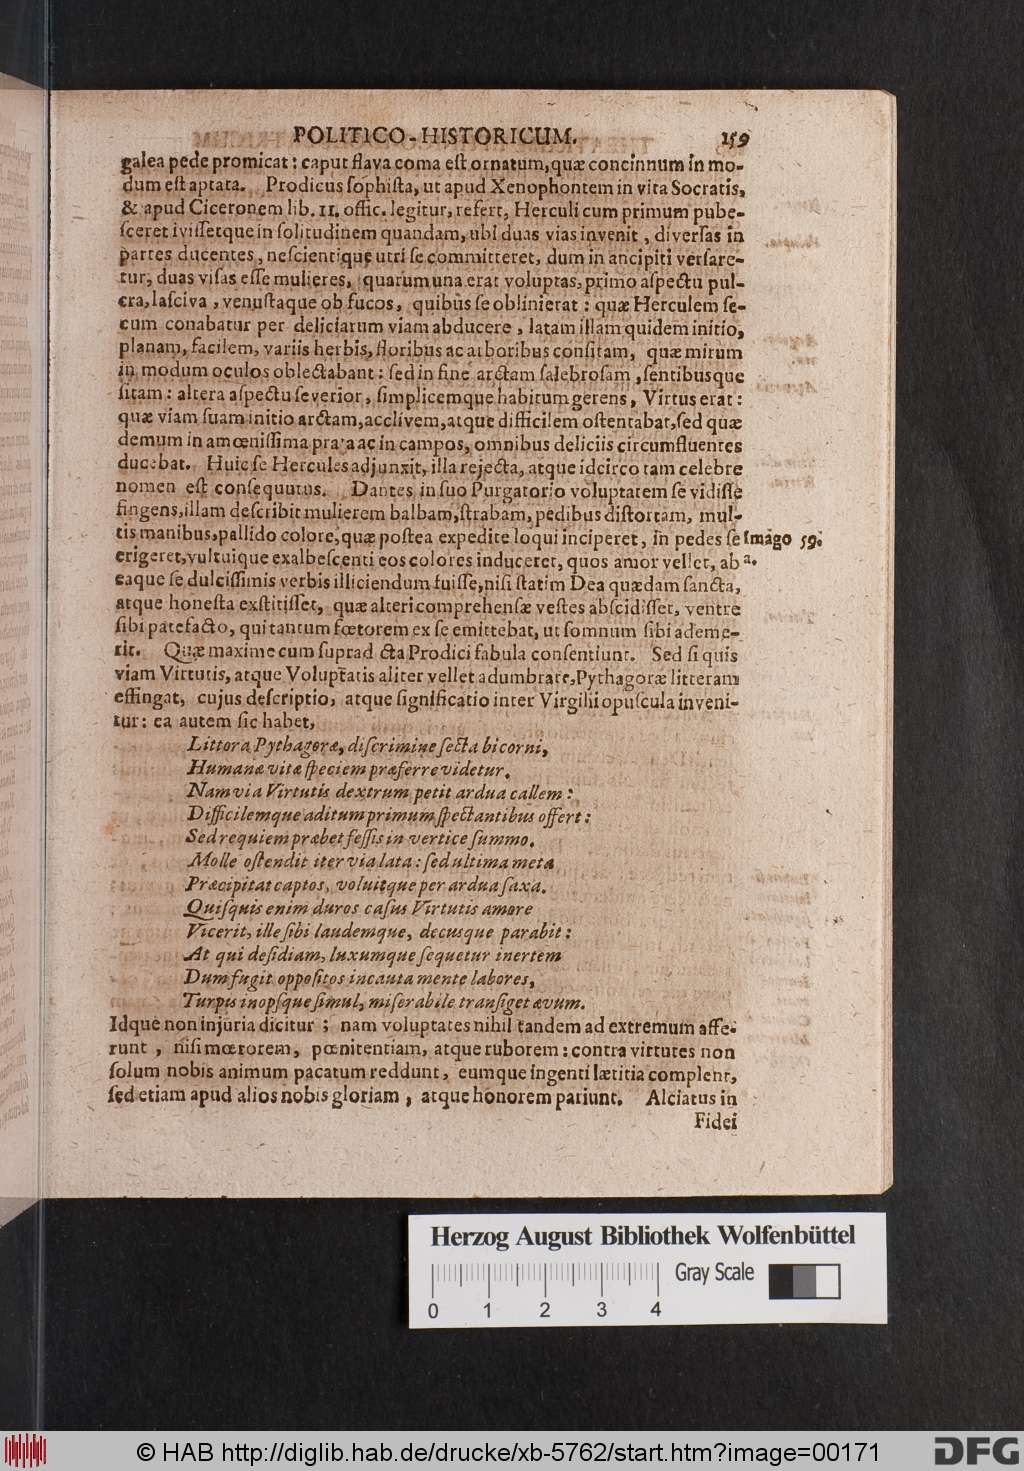 POLITICO-HISTORICUM. 159
galea pede promicat: caput flava coma eſt ornatum, quæ concinnum in mo-
dum eſt aptata. Prodicus ſophiſta, ut apud Xenophontem in vita Socratis,
& apud Ciceronem lib. 11. offic. legitur, refert, Herculi cum primum pube-
ſceret iviſſetque in ſolitudinem quandam, ubi duas vias invenit, diverſas in
partes ducentes, neſcientique utri ſe committeret, dum in ancipiti verſare-
tur, duas viſas eſſe mulieres, quarum una erat voluptas, primo aſpectu pul-
cra, laſciva, venuſtaque ob fucos, quibus ſe oblinierat: quæ Herculem ſe-
cum conabatur per deliciarum viam abducere, latam illam quidem initio,
planam, facilem, variis herbis, floribus ac arboribus conſitam, quæ mirum
in modum oculos oblectabant: ſed in fine arctam ſalebroſam, ſentibusque
ſitam: altera aſpectu ſeverior, ſimplicemque habitum gerens, Virtus erat:
quæ viam ſuam initio arctam, acclivem, atque difficilem oſtentabat, ſed quæ
demum in amœniſſima prata ac in campos, omnibus deliciis circumfluentes
ducebat. Huic ſe Hercules adjunxit, illa rejecta, atque idcirco tam celebre
nomen eſt conſequutus. Dantes in ſuo Purgatorio voluptatem ſe vidiſſe
fingens, illam deſcribit mulierem balbam, ſtrabam, pedibus diſtortam, mul-
tis manibus, pallido colore, quæ poſtea expedite loqui inciperet, in pedes ſe Imago 59.
erigeret, vultuique exalbeſcenti eos colores induceret, quos amor vellet, ab a.
eaque ſe dulciſſimis verbis illiciendum fuiſſe, niſi ſtatim Dea quædam ſancta,
atque honeſta exſtitiſſet, quæ alteri comprehenſæ veſtes abſcidiſſet, ventre
ſibi patefacto, qui tantum fœtorem ex ſe emittebat, ut ſomnum ſibi ademe-
rit. Quæ maxime cum ſuprad cta Prodici fabula conſentiunt. Sed ſi quis
viam Virtutis, atque Voluptatis aliter vellet adumbrare, Pythagoræ litteram
effingat, cujus deſcriptio, atque ſignificatio inter Virgilii opuſcula inveni-
tur: ea autem ſic habet,
Littora Pythagoræ, diſcrimine ſecta bicorni,
Humanæ vitæ ſpeciem præferre videtur.
Nam via Virtutis dextrum petit ardua callem:
Difficilemque aditum primum ſpectantibus offert:
Sed requiem præbet feſſis in vertice ſummo.
Molle oſtendit iter via lata: ſed ultima meta
Præcipitat captos, voluitque per ardua ſaxa.
Quiſquis enim duros caſus Virtutis amore
Vicerit, ille ſibi laudemque, decusque parabit:
At qui deſidiam, luxumque ſequetur inertem
Dum fugit oppoſitos incauta mente labores,
Turpis inopſque ſimul, miſerabile tranſiget ævum.
Idque non injuria dicitur; nam voluptates nihil tandem ad extremum affe-
runt, niſi mœrorem, pœnitentiam, atque ruborem: contra virtutes non
ſolum nobis animum pacatum reddunt, eumque ingenti lætitia complent,
ſed etiam apud alios nobis gloriam, atque honorem pariunt. Alciatus in
Fidei
Herzog August Bibliothek Wolfenbüttel
Gray Scale
0 1 2 3 4
© HAB http://diglib.hab.de/drucke/xb-5762/start.htm?image=00171
DFG